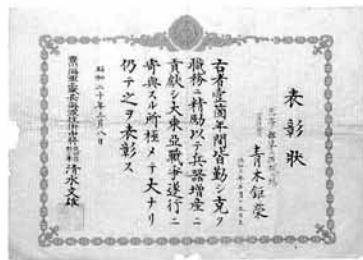 表彰状
青木鉦榮
右者壹箇年間皆勤シ克ク
職務ニ精励以テ兵器増産ニ
貢献シ大東亞戰爭遂行ニ
寄與スル所極メテ大ナリ
仍テ之ヲ表彰ス
昭和二十年三月八日
清水文雄